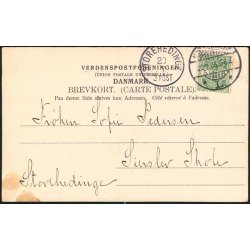 VERDENSPOSTFORENINGEN
(UNION POSTALE UNIVERSELLE)
DANMARK.
BREVKORT. (CARTE POSTALE).
Paa denne Side skrives kun Adressen. Côté réservé à l'adresse.
STOREHEDINGE
23
2 POST
Frøken Sofie Pedersen
Skole
Storehedinge